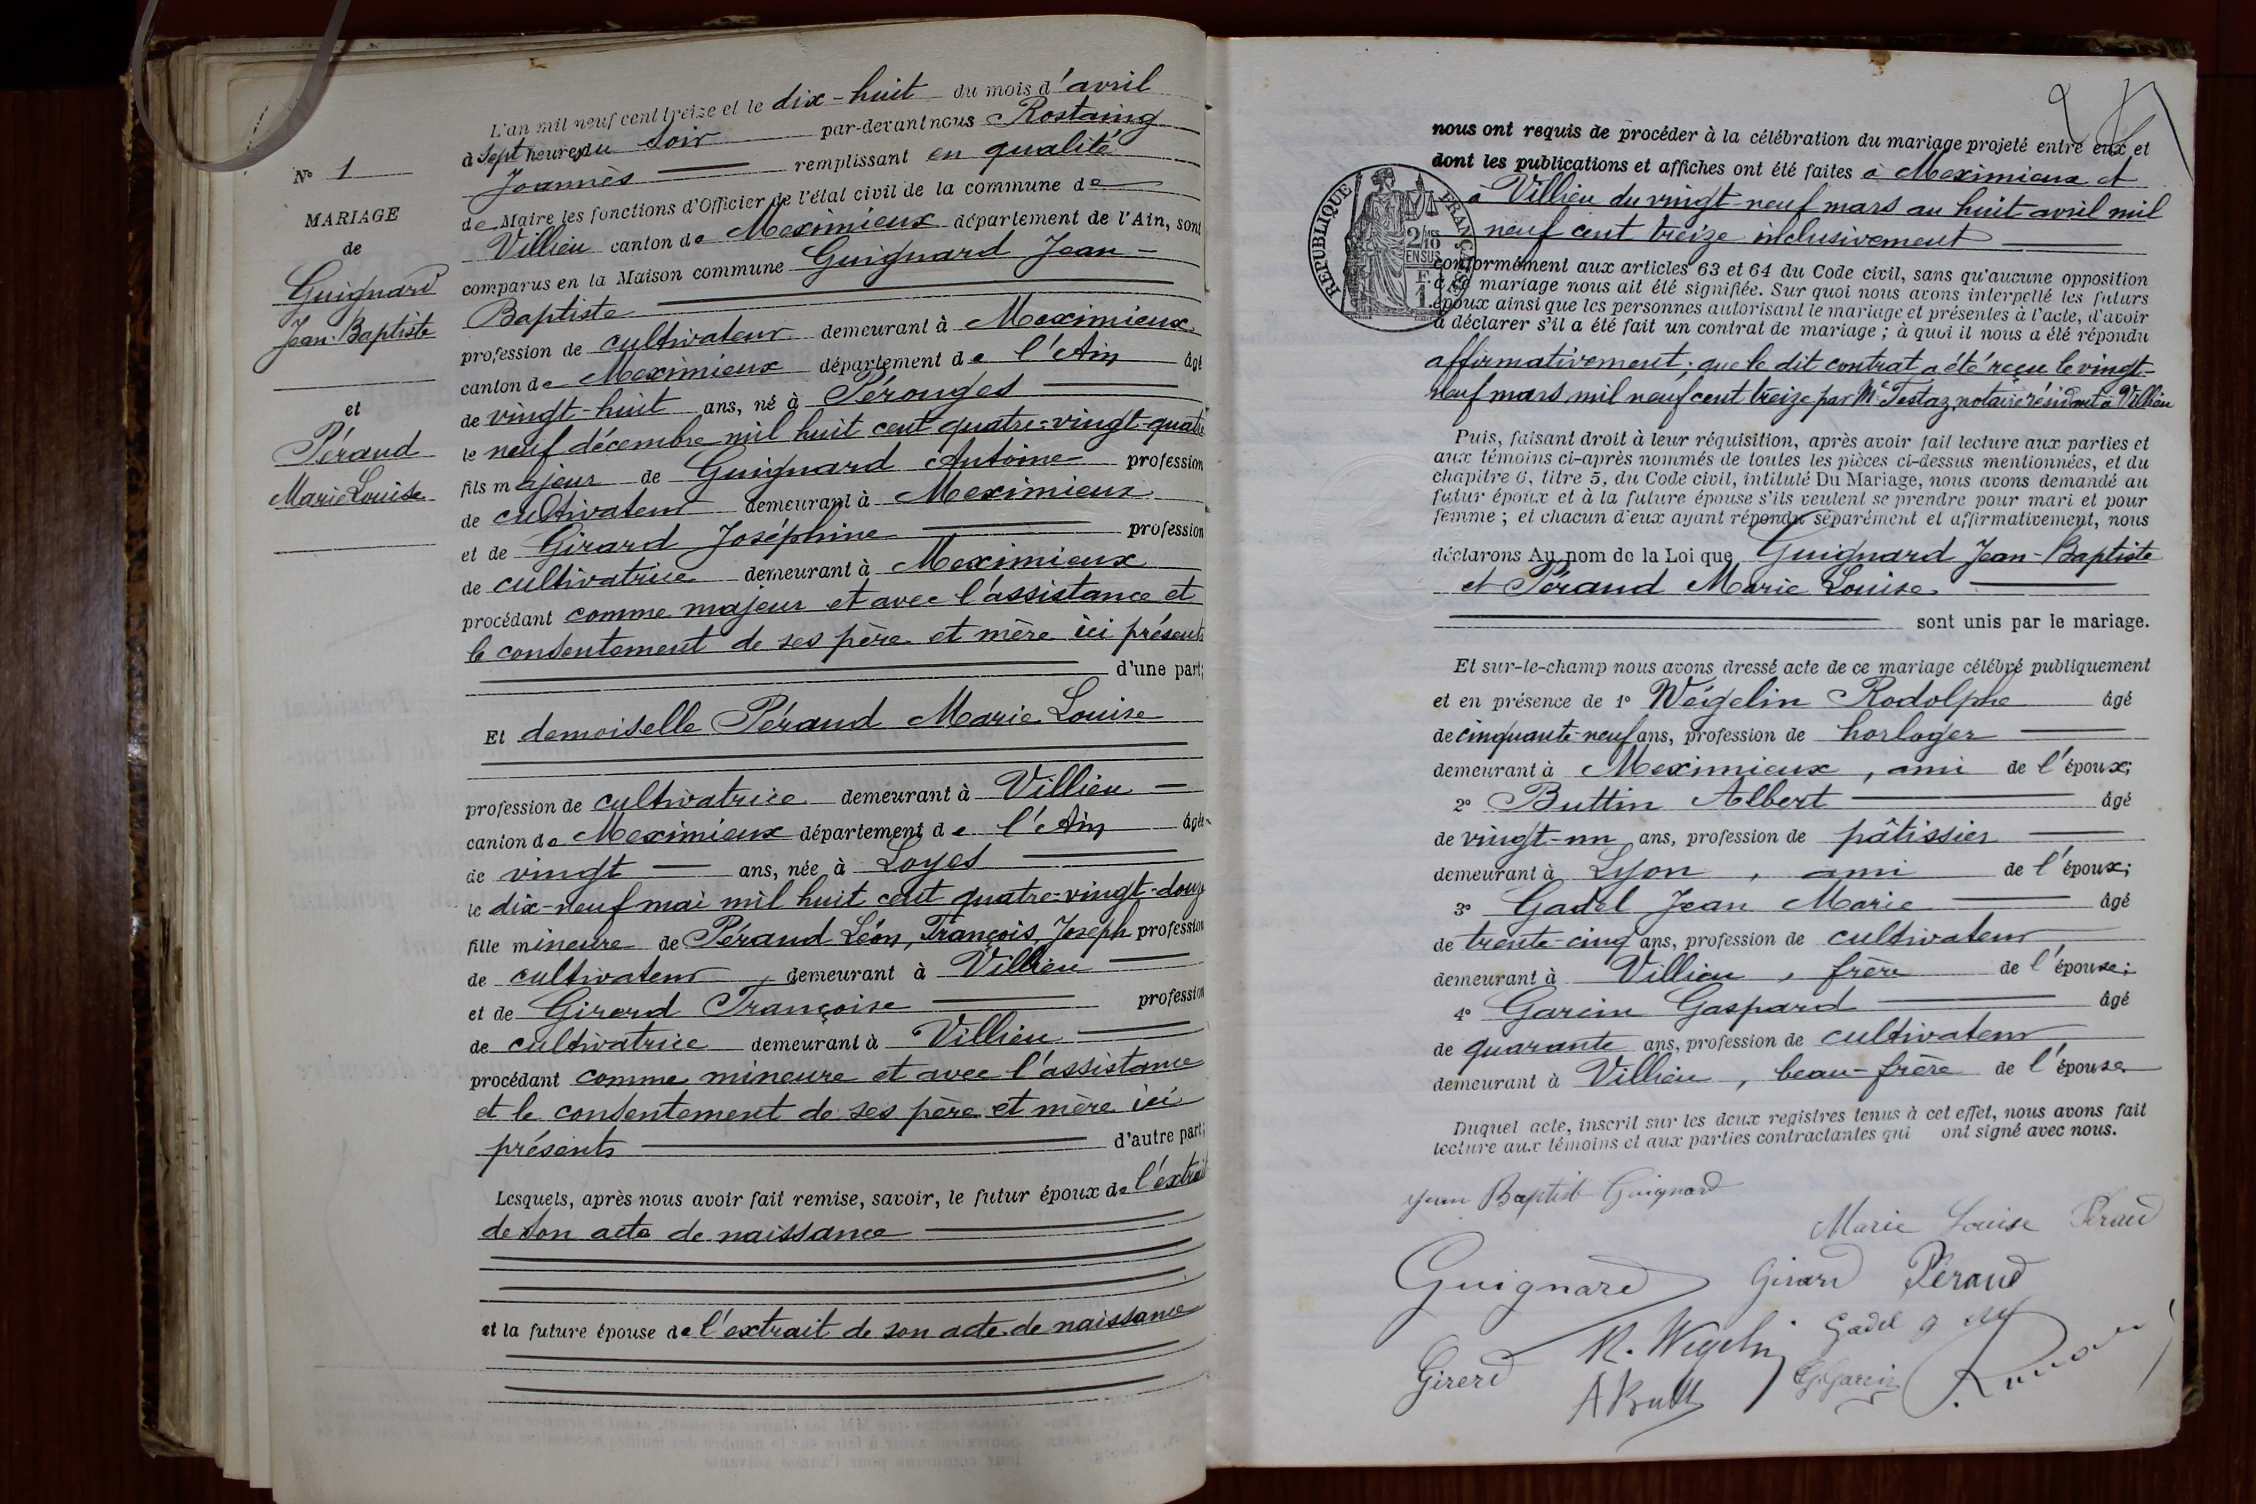 N° 1
MARIAGE
de
Guignard
Jean-Baptiste
et
Péraud
Marie Louise
L'an mil neuf cent treize et le dix-huit du mois d'avril
à sept heures du soir par-devant nous Rostaing
Joannès remplissant en qualité
de Maire les fonctions d'Officier de l'état civil de la commune de
Villieu canton de Meximieux département de l'Ain, sont
comparus en la Maison commune Guignard Jean-
Baptiste
profession de cultivateur demeurant à Meximieux
canton de Meximieux département de l'Ain âgé
de vingt-huit ans, né à Pérouges
le neuf décembre mil huit cent quatre-vingt-quatre
fils majeur de Guignard Antoine profession
de cultivateur demeurant à Meximieux
et de Girard Joséphine profession
de cultivatrice demeurant à Meximieux
procédant comme majeur et avec l'assistance et
le consentement de ses père et mère ici présents
d'une part;
Et demoiselle Péraud Marie Louise
profession de cultivatrice demeurant à Villieu
canton de Meximieux département de l'Ain âgée
de vingt ans, née à Loyes
le dix-neuf mai mil huit cent quatre-vingt-douze
fille mineure de Péraud Léon, François, Joseph profession
de cultivateur, demeurant à Villieu
et de Girerd Françoise profession
de cultivatrice demeurant à Villieu
procédant comme mineure et avec l'assistance
et le consentement de ses père et mère ici
présents d'autre part;
Lesquels, après nous avoir fait remise, savoir, le futur époux de l'extrait
de son acte de naissance
et la future épouse de l'extrait de son acte de naissance
nous ont requis de procéder à la célébration du mariage projeté entre eux et
dont les publications et affiches ont été faites à Meximieux et
à Villieu du vingt-neuf mars au huit avril mil
neuf cent treize inclusivement
RÉPUBLIQUE FRANÇAISE
2/10 EN SUS
conformément aux articles 63 et 64 du Code civil, sans qu'aucune opposition
à ce mariage nous ait été signifiée. Sur quoi nous avons interpellé les futurs
époux ainsi que les personnes autorisant le mariage et présentes à l'acte, d'avoir
à déclarer s'il a été fait un contrat de mariage ; à quoi il nous a été répondu
affirmativement; que le dit contrat a été reçu le vingt-
neuf mars mil neuf cent treize par Me Testaz, notaire résidant à Villieu
Puis, faisant droit à leur réquisition, après avoir fait lecture aux parties et
aux témoins ci-après nommés de toutes les pièces ci-dessus mentionnées, et du
chapitre 6, titre 5, du Code civil, intitulé Du Mariage, nous avons demandé au
futur époux et à la future épouse s'ils veulent se prendre pour mari et pour
femme ; et chacun d'eux ayant répondu séparément et affirmativement, nous
déclarons Au nom de la Loi que Guignard Jean-Baptiste
et Péraud Marie Louise
sont unis par le mariage.
Et sur-le-champ nous avons dressé acte de ce mariage célébré publiquement
et en présence de 1° Weigelin Rodolphe âgé
de cinquante-neuf ans, profession de horloger
demeurant à Meximieux, ami de l'époux;
2° Buttin Albert âgé
de vingt-un ans, profession de pâtissier
demeurant à Lyon, ami de l'époux;
3° Gadel Jean Marie âgé
de trente-cinq ans, profession de cultivateur
demeurant à Villieu, frère de l'épouse;
4° Garcin Gaspard âgé
de quarante ans, profession de cultivateur
demeurant à Villieu, beau-frère de l'épouse
Duquel acte, inscrit sur les deux registres tenus à cet effet, nous avons fait
lecture aux témoins et aux parties contractantes qui ont signé avec nous.
Jean Baptiste Guignard
Marie Louise Péraud
Guignard Girard Péraud
R. Wegelin Gadel
Girerd G. Garcin